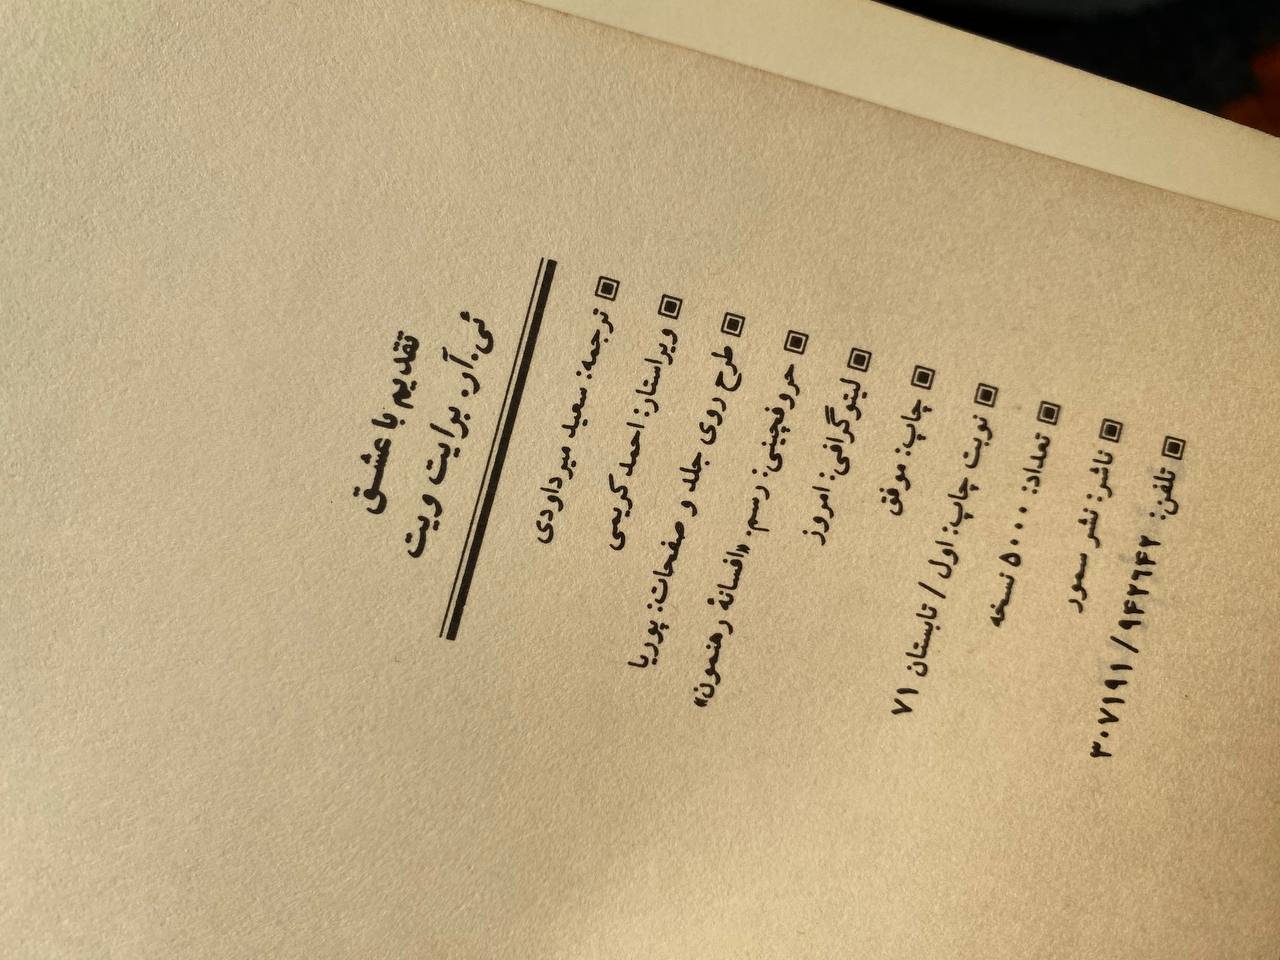 تقدیم با عشق
ئی. آر. برایت ویت
ترجمه: سعید میرداودی
ویراستار: احمد کریمی
طرح روی جلد و صفحات: پوریا
حروفچینی: رسم. «افسانهٔ رهنمون»
لیتوگرافی: امروز
چاپ: موفق
نوبت چاپ: اول / تابستان ۷۱
تعداد: ۵۰۰۰ نسخه
ناشر: نشر سمور
تلفن: ۹۴۲۶۴۲ / ۳۰۷۱۹۱